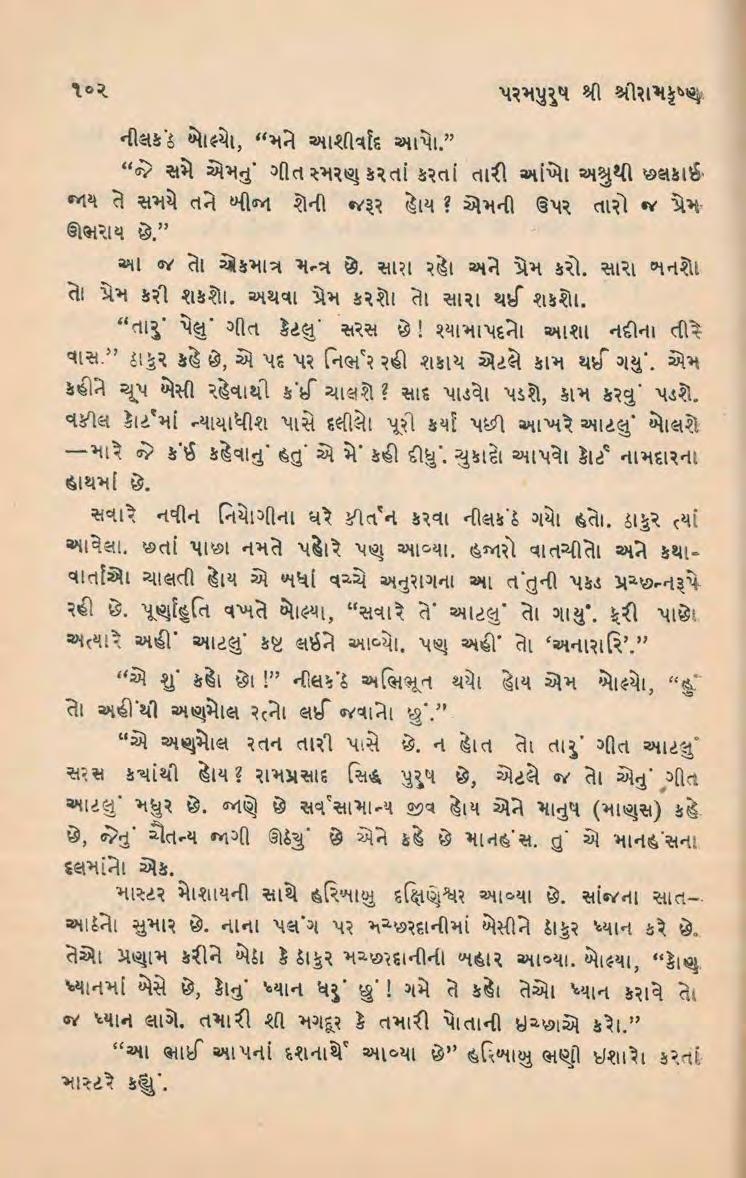 ૧૦૨ પરમપુરુષ શ્રી શ્રીરામકૃષ્ણ
નીલકંઠ બોલ્યો, “મને આશીર્વાદ આપો.”
“જે સમે એમનું ગીત સ્મરણ કરતાં કરતાં તારી આંખો અશ્રુથી છલકાઈ
જાય તે સમયે તને બીજા શેની જરૂર હોય ? એમની ઉપર તારો જ પ્રેમ
ઊભરાય છે.”
આ જ તો એકમાત્ર મન્ત્ર છે. સારા રહો અને પ્રેમ કરો. સારા બનશો
તો પ્રેમ કરી શકશો. અથવા પ્રેમ કરશો તો સારા થઈ શકશો.
“તારું પેલું ગીત કેટલું સરસ છે ! શ્યામાપદનો આશા નદીના તીરે
વાસ.” ઠાકુર કહે છે, એ પદ પર નિર્ભર રહી શકાય એટલે કામ થઈ ગયું. એમ
કહીને ચૂપ બેસી રહેવાથી કંઈ ચાલશે ? સાદ પાડવો પડશે, કામ કરવું પડશે.
વકીલ કોર્ટમાં ન્યાયાધીશ પાસે દલીલો પૂરી કર્યા પછી આખરે આટલું બોલશે
—મારે જે કંઈ કહેવાનું હતું એ મેં કહી દીધું. ચુકાદો આપવો કોર્ટ નામદારના
હાથમાં છે.
સવારે નવીન નિયોગીના ઘરે કીર્તન કરવા નીલકંઠ ગયો હતો. ઠાકુર ત્યાં
આવેલા. છતાં પાછા નમતે પહોરે પણ આવ્યા. હજારો વાતચીતો અને કથા-
વાર્તાઓ ચાલતી હોય એ બધાં વચ્ચે અનુરાગના આ તંતુની પકડ પ્રચ્છન્નરૂપે
રહી છે. પૂર્ણાહુતિ વખતે બોલ્યા, “સવારે તેં આટલું તો ગાયું. ફરી પાછો
અત્યારે અહીં આટલું કષ્ટ લઈને આવ્યો. પણ અહીં તો ‘અનારારિ’.”
“એ શું કહો છો !” નીલકંઠ અભિભૂત થયો હોય એમ બોલ્યો, “હું
તો અહીંથી અણમોલ રત્નો લઈ જવાનો છું.”
“એ અણમોલ રતન તારી પાસે છે. ન હોત તો તારું ગીત આટલું
સરસ ક્યાંથી હોય ? રામપ્રસાદ સિદ્ધ પુરુષ છે, એટલે જ તો એનું ગીત
આટલું મધુર છે. જાણે છે સર્વસામાન્ય જીવ હોય એને માનુષ (માણસ) કહે
છે, જેનું ચૈતન્ય જાગી ઊઠ્યું છે એને કહે છે માનહંસ. તું એ માનહંસના
દલમાંનો એક.
માસ્ટર મોશાયની સાથે હરિબાબુ દક્ષિણેશ્વર આવ્યા છે. સાંજના સાત-
આઠનો સુમાર છે. નાના પલંગ પર મચ્છરદાનીમાં બેસીને ઠાકુર ધ્યાન કરે છે.
તેઓ પ્રણામ કરીને બેઠા કે ઠાકુર મચ્છરદાનીની બહાર આવ્યા. બોલ્યા, “કોણ
ધ્યાનમાં બેસે છે, કોનું ધ્યાન ધરું છું ! ગમે તે કહો તેઓ ધ્યાન કરાવે તો
જ ધ્યાન લાગે. તમારી શી મગદૂર કે તમારી પોતાની ઇચ્છાએ કરો.”
“આ ભાઈ આપનાં દર્શનાર્થે આવ્યા છે” હરિબાબુ ભણી ઇશારો કરતાં
માસ્ટરે કહ્યું.